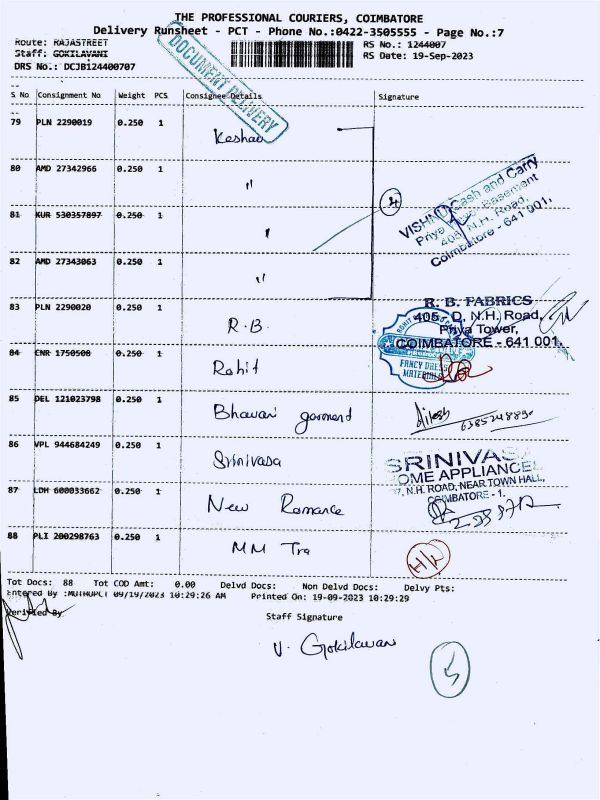 THE PROFESSIONAL COURIERS, COIMBATORE
Delivery Runsheet - PCT - Phone No.:0422-3505555 - Page No.:7
Route: RAJASTREET
RS No.: 1244007
Staff: GOKILAVANI
RS Date: 19-Sep-2023
DRS No.: DCJB124400707
DOCUMENT DELIVERY
S No Consignment No Weight PCS Consignee Details Signature
79 PLN 2290019 0.250 1
80 AMD 27342966 0.250 1 "
VISHNU Cash and Carry
Priya Basement
408, N.H. Road,
Coimbatore - 641 001.
81 KUR 530357897 0.250 1 "
82 AMD 27343063 0.250 1 "
83 PLN 2290020 0.250 1 R.B.
R. B. FABRICS
405 - D, N.H. Road,
Priya Tower,
COIMBATORE - 641 001.
84 CNR 1750508 0.250 1 Rohit
FANCY DRESS
MATERIALS
85 DEL 121023798 0.250 1 Bhavani garment
Dilesh
6385248890
86 VPL 944684249 0.250 1 Srinivasa
SRINIVASA
HOME APPLIANCES
N.H. ROAD, NEAR TOWN HALL,
COIMBATORE - 1.
87 LDH 600033662 0.250 1 New Romance
88 PLI 200298763 0.250 1 MM Tra
Tot Docs: 88 Tot COD Amt: 0.00 Delvd Docs: Non Delvd Docs: Delvy Pts:
Entered By :MUTHUPCT 09/19/2023 10:29:26 AM Printed On: 19-09-2023 10:29:29
Verified By
Staff Signature
V. Gokilavani